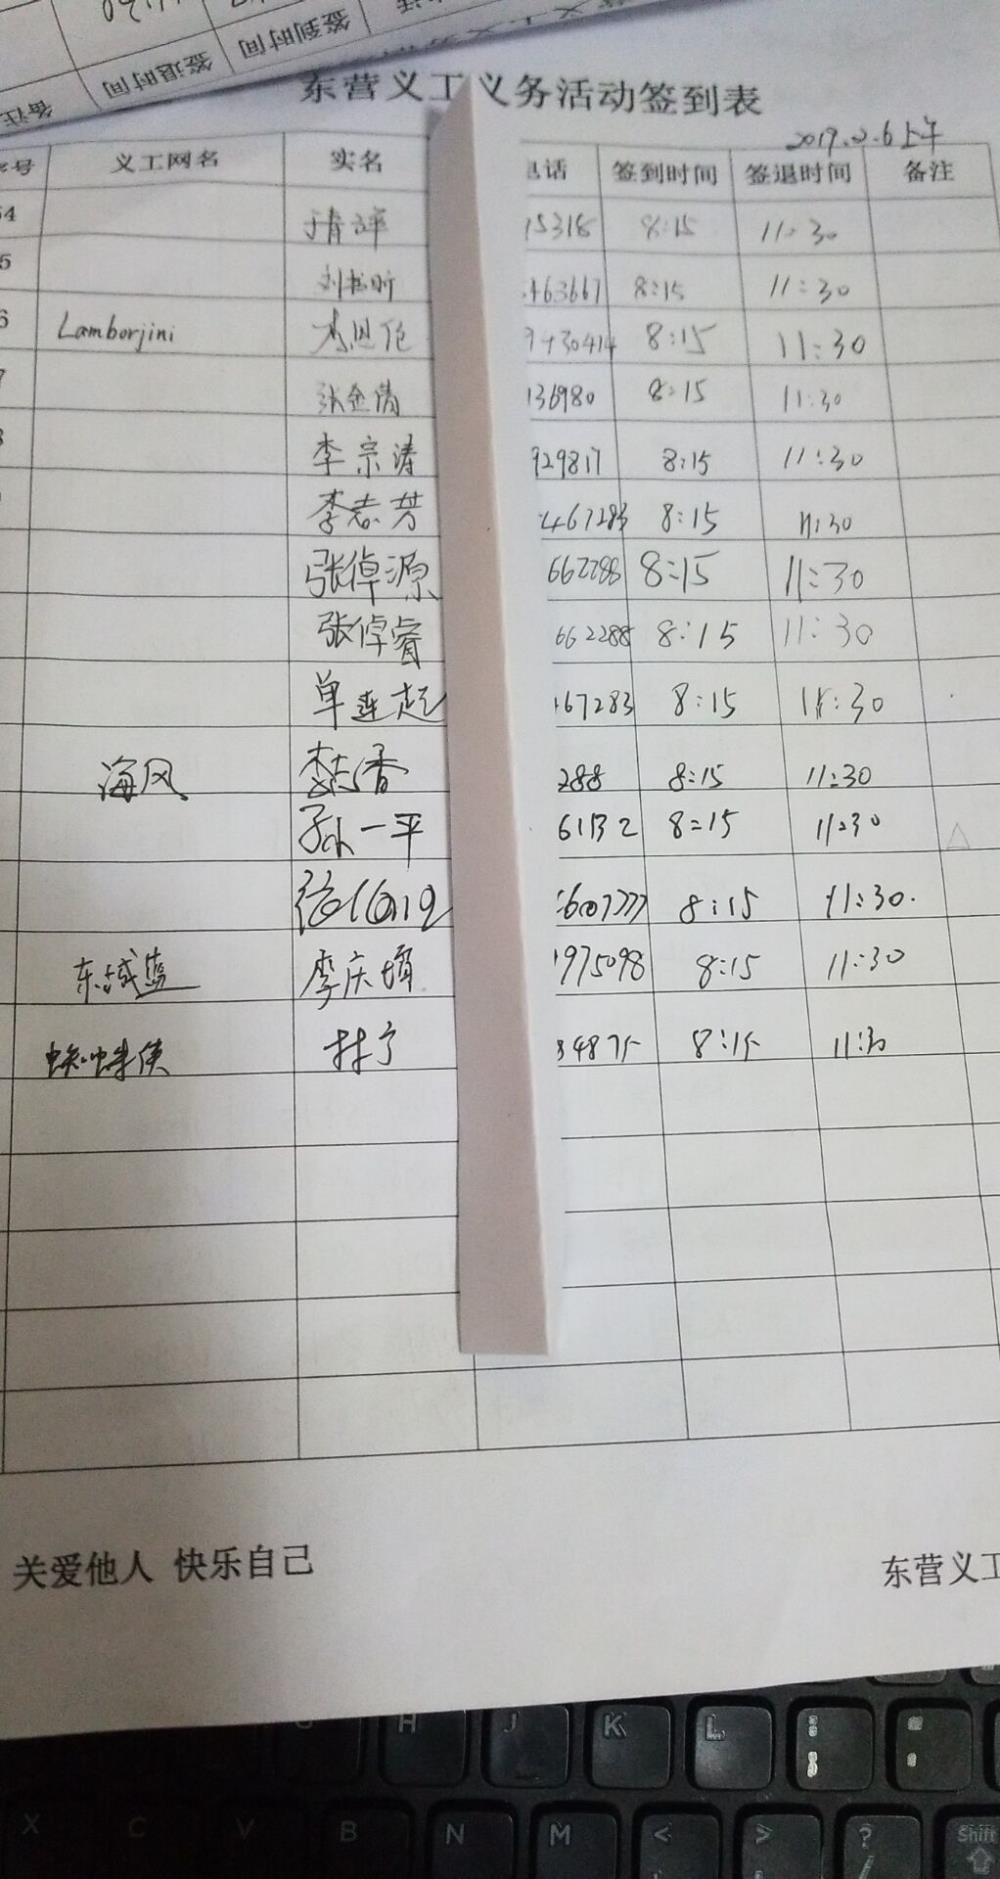 签退时间 签到时间
备注
东营义工义务活动签到表
2017.2.6上午
号 义工网名 实名 话 签到时间 签退时间 备注
4 15318 8:15 11:30
5 463667 8:15 11:30
6 Lamborjini 430414 8:15 11:30
136980 8:15 11:30
李宗涛 929817 8:15 11:30
李志芳 467283 8:15 11:30
张倬源 662288 8:15 11:30
张倬睿 662288 8:15 11:30
单连起 167283 8:15 11:30
海风 李志香 288 8:15 11:30
孙一平 8:15 11:30
8:15 11:30
东城蓝 李庆 1975098 8:15 11:30
蜘蛛侠 林宁 8:15 11:30
关爱他人 快乐自己
东营义工
H J K L : ;
X C V B N M < > ? / Shift